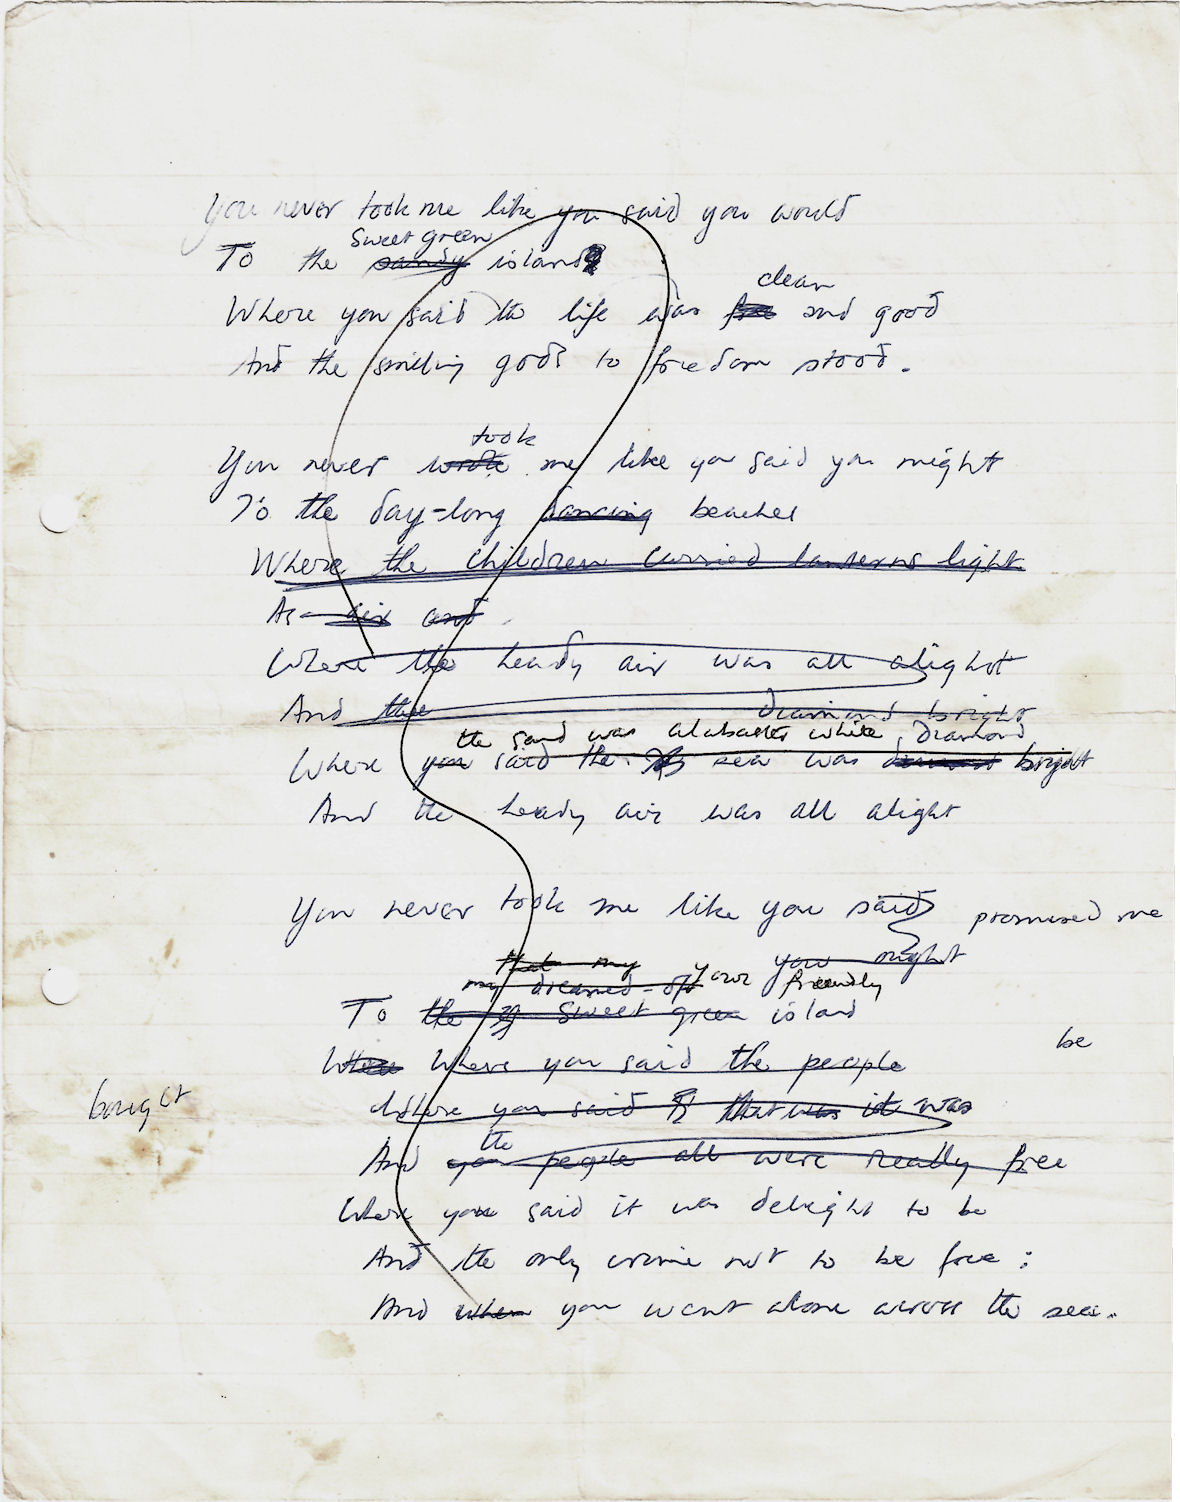 You never took me like you said you would
Sweet green
To the sandy island
clean
Where you said the life was free and good
And the smiling gods to freedom stood.
took
You never wrote me like you said you might
To the day-long dancing beaches
Where the children carried lanterns light
As air and
Where the heady air was all alight
And the diamond bright
the sand was alabaster white, diamond
Where you said the sea was bright
And the heady air was all alight
You never took me like you said promised me
that my you might
my dreamed-of your friendly
To the Sweet green island
Where Where you said the people
be
bought
Where you said that was it was
the
And you people all were really free
Where you said it was delight to be
And the only crime not to be free:
And when you went alone across the sea.